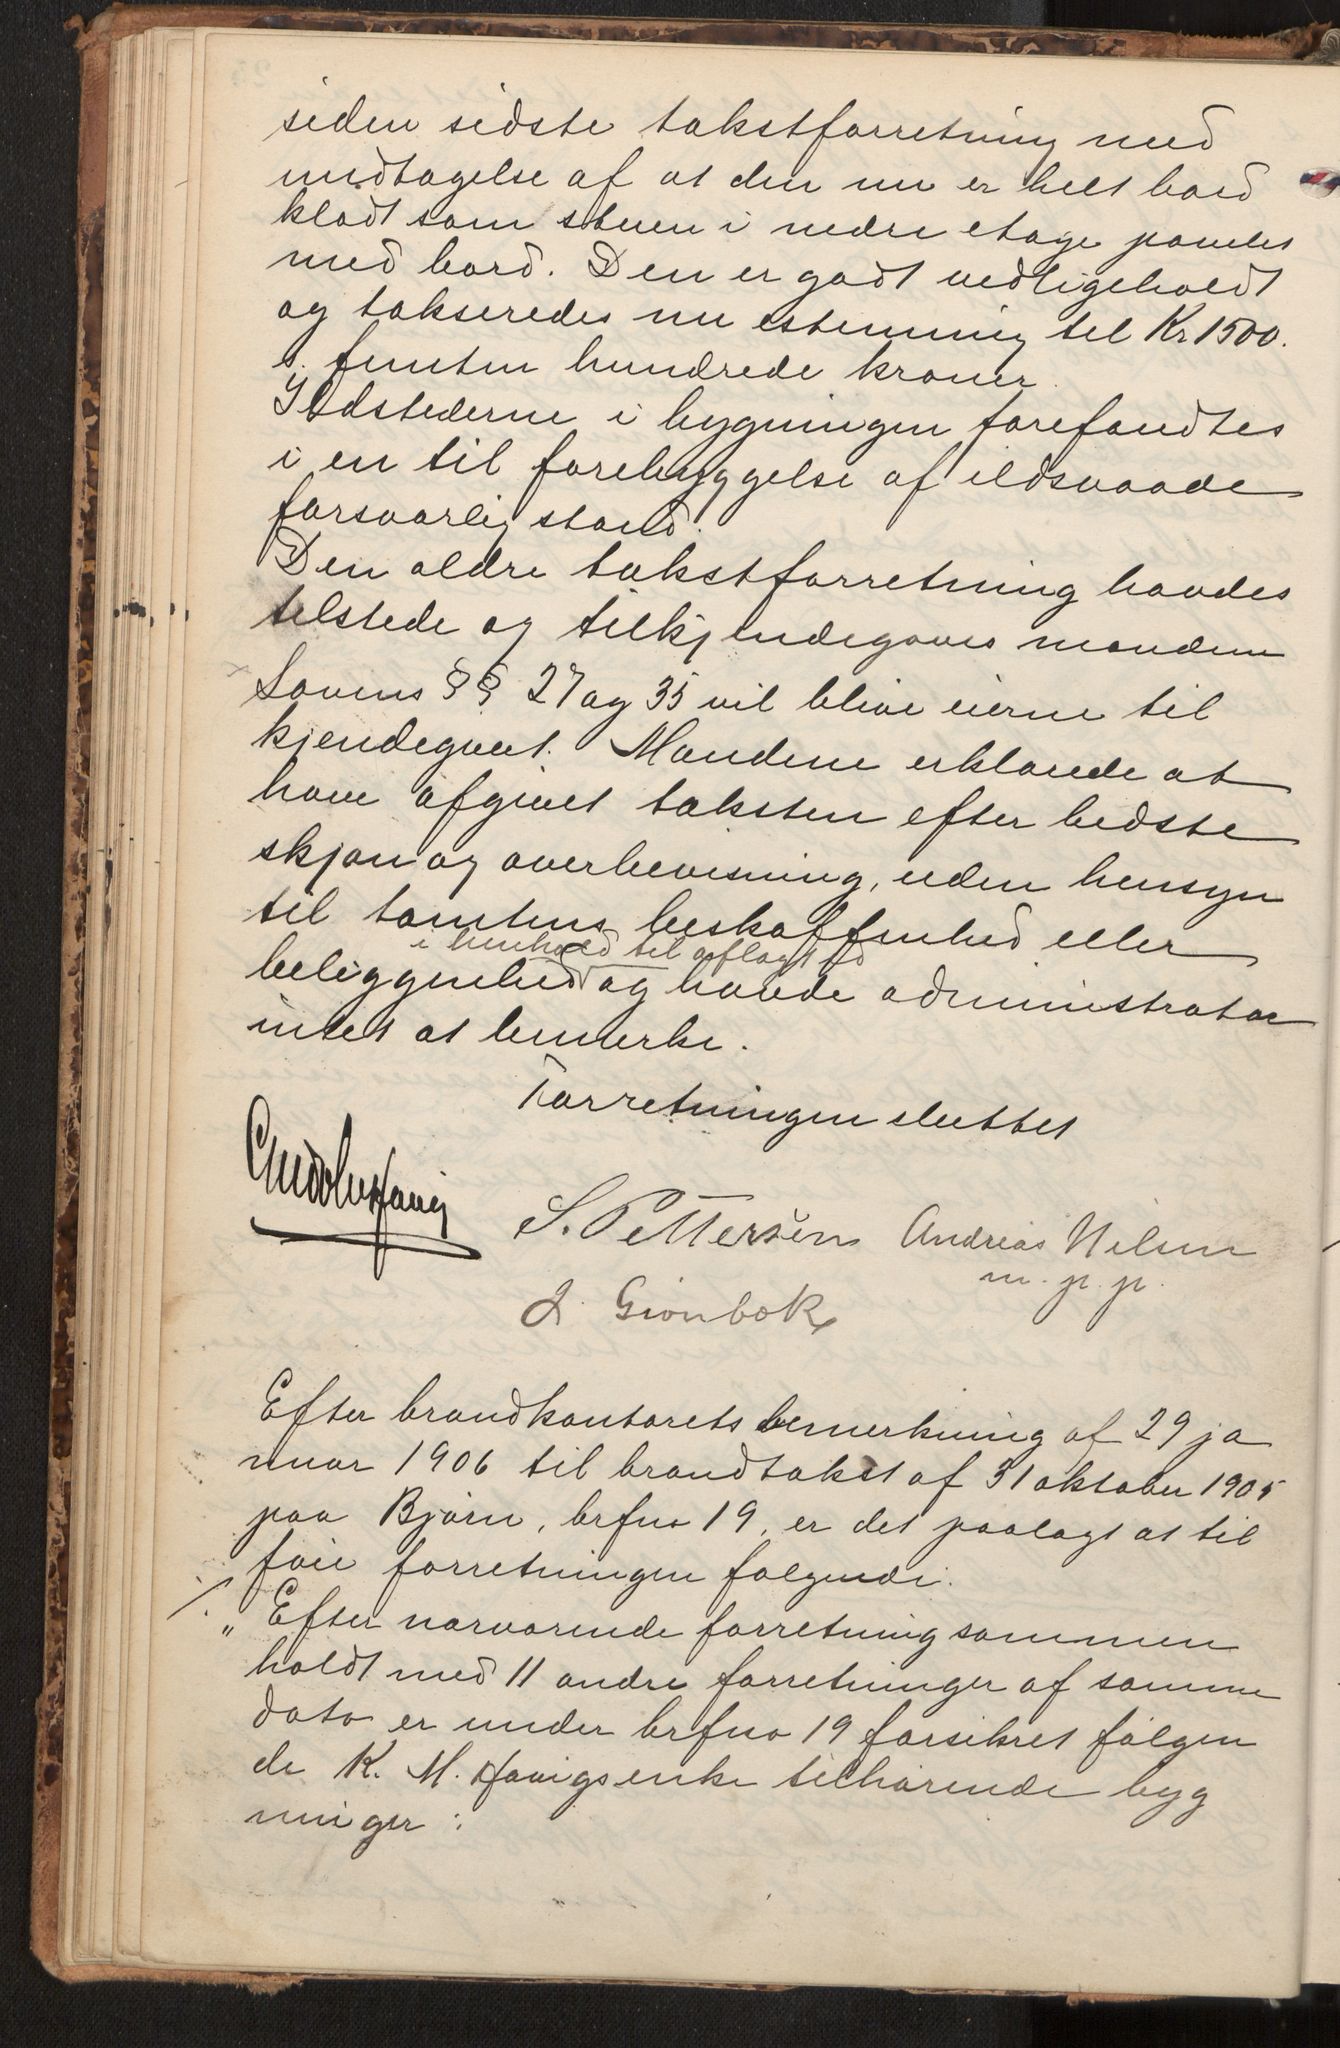 siden sidste takstforretning med
undtagelse af at den nu er helt bord
klædt som stuen i nedre etage panelet
med bord. Den er godt vedligeholdt
og takseredes nu estemmig til Kr 1500.
s. femten hundrede kroner.
Ildstederne i bygningen forefandtes
i en til forebyggelse af ildsvaade
forsvarlig stand.
Den ældre takstforretning havdes
tilstede og tilkjendegaves mændene
Lovens §§ 27 og 35 vil blive eierne til
kjendegivet. Mændene erklærede at
have afgivet taksten efter bedste
skjøn og overbevisning, uden hensyn
til tomtens beskaffenhed eller
i henhold til aflagt ed
beliggenhed og havde administrator
intet at bemerke.
Forretningen sluttet
S. Pettersen Andreas Nilsen
m. p. p.
J. Grønbæk
Efter brandkontorets bemerkning af 29 ja
nuar 1906 til brandtakst af 31 oktober 1905
paa Bjørn, brfno 19, er det paalagt at til
føie forretningen følgende.
·/. „Efter nærværende forretning sammen
holdt med 11 andre forretninger af samme
dato er under brfno 19 forsikret følgen
de K. M. Havigs enke tilhørende byg
ninger: